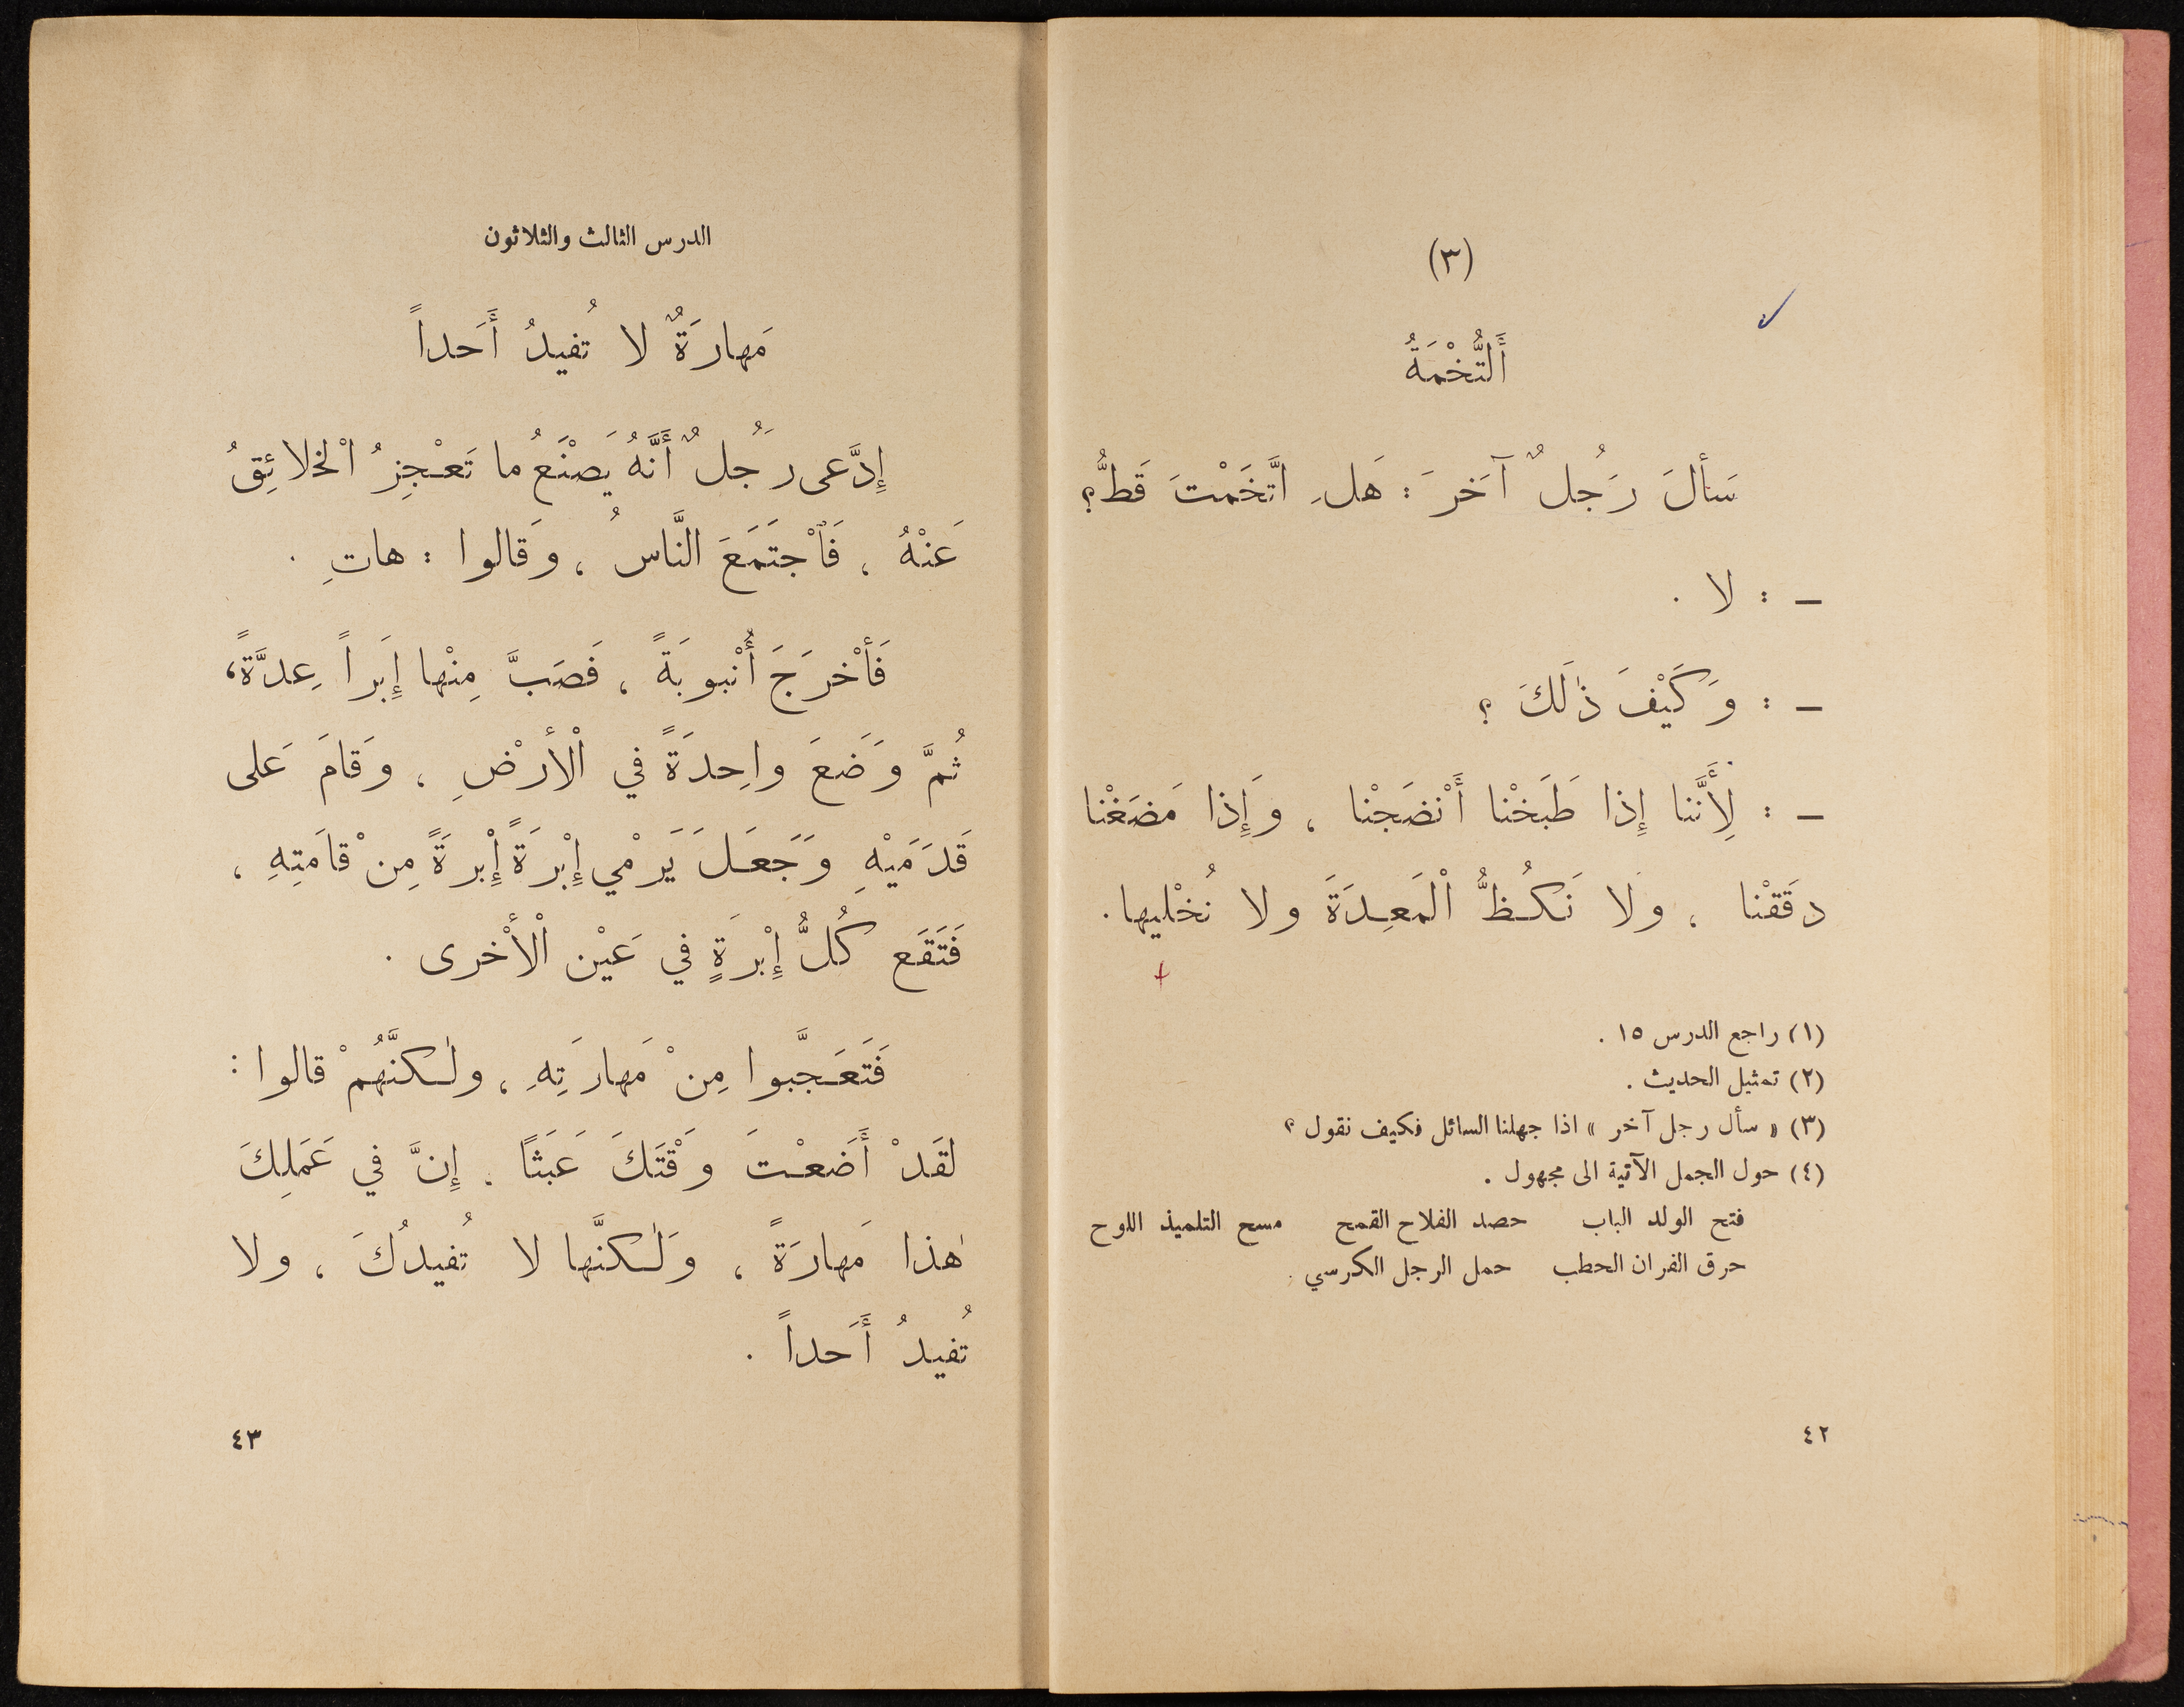 (٣)
أَلتُّخْمَةُ
سَأَلَ رَجُلٌ آخَرَ : هَلِ اتَّخَمْتَ قَطُّ؟
— : لا .
— : وَكَيْفَ ذٰلَكَ ؟
— : لِأَنَّنا إِذا طَبَخْنا أَنْضَجْنا ، وَإِذا مَضَغْنا
دَقَقْنا ، وَلا نَكُظُّ الْمَعِدَةَ ولا نُخْليها .
(١) راجع الدرس ١٥ .
(٢) تمثيل الحديث .
(٣) « سأل رجل آخر » اذا جهلنا السائل فكيف نقول ؟
(٤) حول الجمل الآتية الى مجهول .
فتح الولد الباب حصد الفلاح القمح مسح التلميذ اللوح
حرق الفران الحطب حمل الرجل الكرسي .
٤٢
الدرس الثالث والثلاثون
مَهارَةٌ لا تُفيدُ أَحَداً
إِدَّعى رَجُلٌ أَنَّهُ يَصْنَعُ ما تَعْجِزُ الْخلائِقُ
عَنْهُ ، فَٱجْتَمَعَ النَّاسُ ، وَقالوا : هاتِ .
فَأَخْرَجَ أُنْبوبَةً ، فَصَبَّ مِنْها إِبَراً عِدَّةً ،
ثُمَّ وَضَعَ واحِدَةً في الْأرْضِ ، وَقامَ عَلى
قَدَمَيْهِ وَجَعَلَ يَرْمْي إِبْرَةً إِبْرةً مِنْ قامَتِهِ ،
فَتَقَع كُلُّ إِبْرَةٍ في عَيْن الْأُخْرى .
فَتَعَجَّبوا مِنْ مَهارَتِهِ ، ولٰكنَّهُمْ قالوا :
لقَدْ أَضَعْتَ وَقْتَكَ عَبَثًا . إِنَّ في عَمَلِكَ
هٰذا مَهارَةً ، وَلٰكنَّها لا تُفيدُكَ ، ولا
تُفيدُ أَحَداً .
٤٣